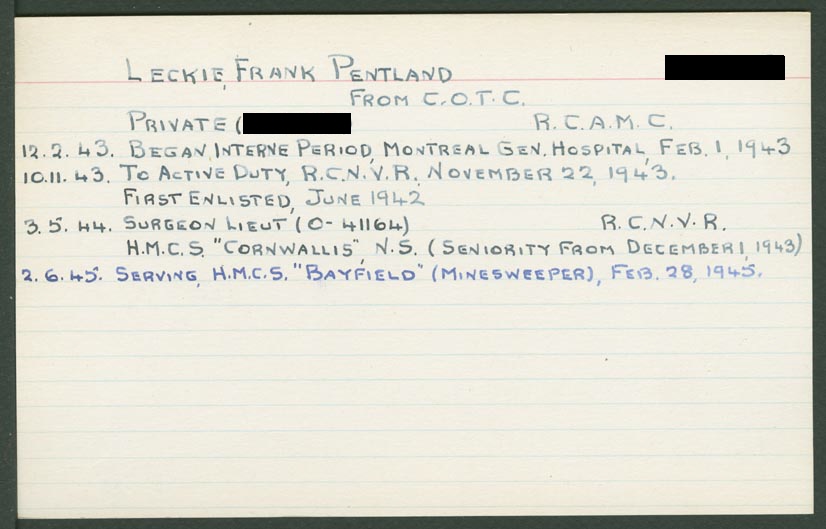 LECKIE, FRANK PENTLAND
FROM C.O.T.C.
PRIVATE ( R.C.A.M.C.
12.2.43. BEGAN INTERNE PERIOD, MONTREAL GEN. HOSPITAL, FEB. 1, 1943
10.11.43. TO ACTIVE DUTY, R.C.N.V.R. NOVEMBER 22, 1943.
FIRST ENLISTED, JUNE 1942
3.5.44. SURGEON LIEUT (O-41164) R.C.N.V.R.
H.M.C.S. "CORNWALLIS", N.S. (SENIORITY FROM DECEMBER 1, 1943)
2.6.45. SERVING, H.M.C.S. "BAYFIELD" (MINESWEEPER), FEB. 28, 1945.